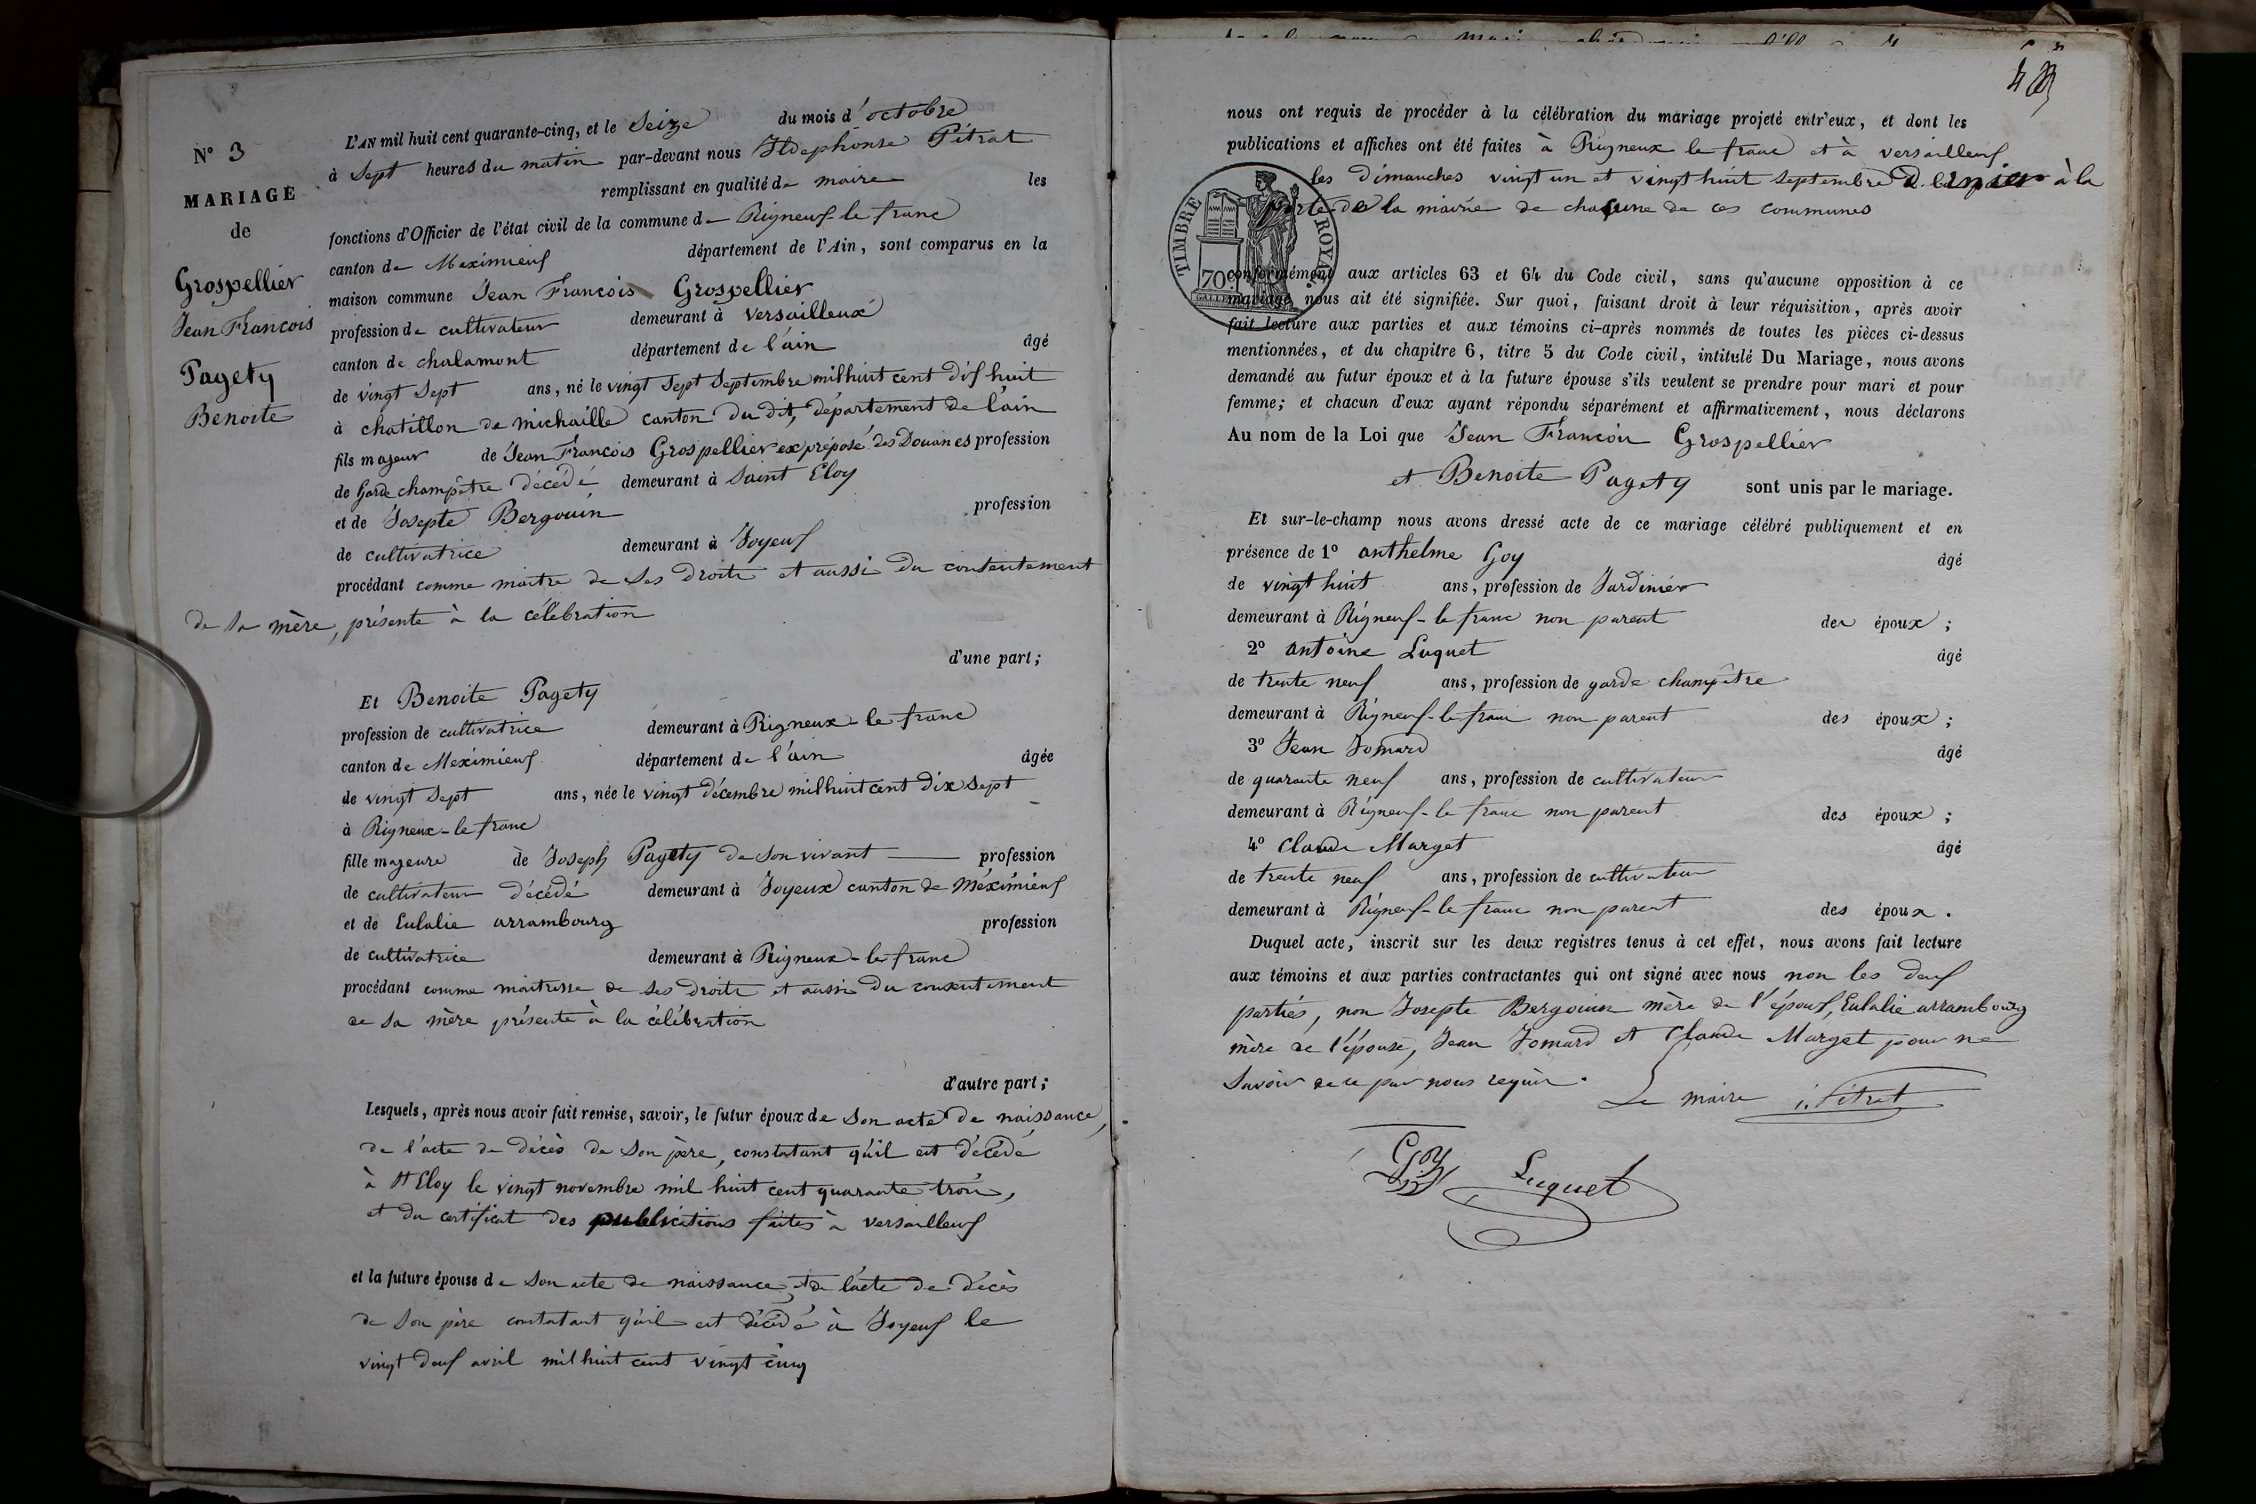 N° 3
MARIAGE
de
Grospellier
Jean François
Pagety
Benoite
L'AN mil huit cent quarante-cinq, et le seize du mois d'octobre
à sept heures du matin par-devant nous Ildephonse Pétrat
remplissant en qualité de maire les
fonctions d'Officier de l'état civil de la commune de Rigneuf-le franc
canton de Meximieuf département de l'Ain, sont comparus en la
maison commune Jean François Grospellier
profession de cultivateur demeurant à Versailleux
canton de chalamont département de l'ain âgé
de vingt sept ans, né le vingt sept septembre mil huit cent dif huit
à chatillon de michaille canton du dit, département de l'ain
fils majeur de Jean François Grospellier ex préposé des Douanes profession
de Garde champêtre décédé demeurant à Saint Eloy
et de Josepte Bergouin profession
de cultivatrice demeurant à Joyeuf
procédant comme maitre de ses droits et aussi du consentement
de sa mère, présente à la célébration
d'une part;
Et Benoite Pagety
profession de cultivatrice demeurant à Rigneux-le franc
canton de Meximieuf département de l'ain âgée
de vingt sept ans, née le vingt décembre mil huit cent dix sept
à Rigneux-le franc
fille majeure de Joseph Pagety de son vivant profession
de cultivateur décédé demeurant à Joyeux canton de Méximieuf
et de Eulalie arrambourg profession
de cultivatrice demeurant à Rigneux-le franc
procédant comme maitresse de ses droits et aussi du consentement
de sa mère présente à la célébration
d'autre part;
Lesquels, après nous avoir fait remise, savoir, le futur époux de son acte de naissance,
de l'acte de décès de son père, constatant qu'il est décédé
à St Eloy le vingt novembre mil huit cent quarante trois,
et du certificat des publications faites à Versailleuf
et la future épouse de son acte de naissance, et de l'acte de décès
de son père constatant qu'il est décédé à Joyeuf le
vingt deuf avril mil huit cent vingt cinq
nous ont requis de procéder à la célébration du mariage projeté entr'eux, et dont les
publications et affiches ont été faites à Rigneux le franc et à versailleuf
les dimanches vingt un et vingt huit septembre dernier à la
porte de la mairie de chacune de ces communes
TIMBRE ROYAL
70c
GALLE
conformément aux articles 63 et 64 du Code civil, sans qu'aucune opposition à ce
mariage nous ait été signifiée. Sur quoi, faisant droit à leur réquisition, après avoir
fait lecture aux parties et aux témoins ci-après nommés de toutes les pièces ci-dessus
mentionnées, et du chapitre 6, titre 5 du Code civil, intitulé Du Mariage, nous avons
demandé au futur époux et à la future épouse s'ils veulent se prendre pour mari et pour
femme; et chacun d'eux ayant répondu séparément et affirmativement, nous déclarons
Au nom de la Loi que Jean François Grospellier
et Benoite Pagety sont unis par le mariage.
Et sur-le-champ nous avons dressé acte de ce mariage célébré publiquement et en
présence de 1° anthelme Goy âgé
de vingt huit ans, profession de Jardinier
demeurant à Rigneuf-le franc non parent des époux;
2° antoine Luquet âgé
de trente neuf ans, profession de garde champêtre
demeurant à Rigneuf-le franc non parent des époux;
3° Jean Jomard âgé
de quarante neuf ans, profession de cultivateur
demeurant à Rigneuf-le franc non parent des époux;
4° Claude Marget âgé
de trente neuf ans, profession de cultivateur
demeurant à Rigneuf-le franc non parent des époux.
Duquel acte, inscrit sur les deux registres tenus à cet effet, nous avons fait lecture
aux témoins et aux parties contractantes qui ont signé avec nous non les deuf
parties, non Josepte Bergouin mère de l'épouf, Eulalie arrambourg
mère de l'épouse, Jean Jomard et Claude Marget pour ne
savoir de ce par nous requis.
Le maire i. Pétrat
Goy Luquet